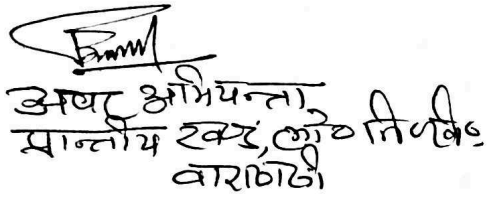 अवर अभियन्ता
प्रान्तीय खण्ड, लो० नि० वि०,
वाराणसी